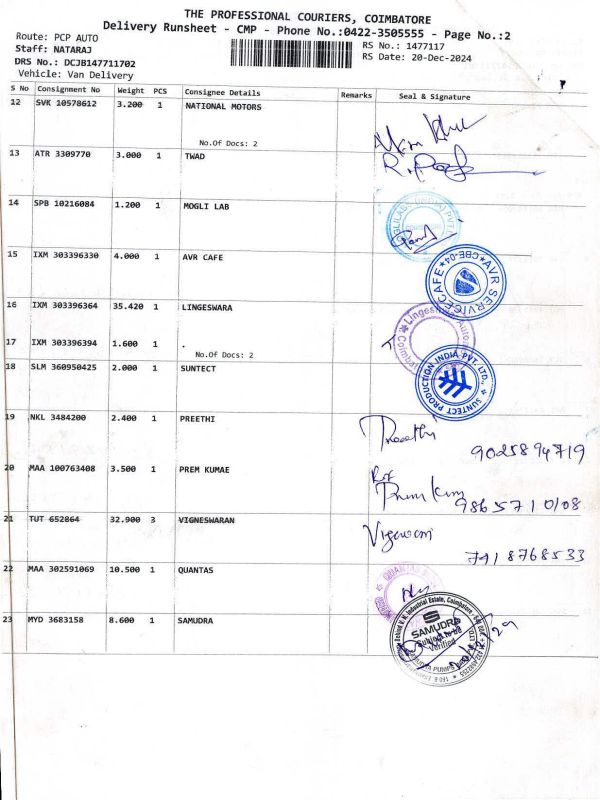 THE PROFESSIONAL COURIERS, COIMBATORE
Delivery Runsheet - CMP - Phone No.:0422-3505555 - Page No.:2
Route: PCP AUTO
RS No.: 1477117
Staff: NATARAJ
RS Date: 20-Dec-2024
DRS No.: DCJB147711702
Vehicle: Van Delivery
S No Consignment No Weight PCS Consignee Details Remarks Seal & Signature
12 SVK 10578612 3.200 1 NATIONAL MOTORS
No.Of Docs: 2
13 ATR 3309770 3.000 1 TWAD
14 SPB 10216084 1.200 1 MOGLI LAB
15 IXM 303396330 4.000 1 AVR CAFE
AVR SERVICE CAFE ★ CBE-04 ★
16 IXM 303396364 35.420 1 LINGESWARA
Lingeswara Auto
Coimbat
17 IXM 303396394 1.600 1 .
No.Of Docs: 2
18 SLM 360950425 2.000 1 SUNTECT
SUNTECT PRODUCTION INDIA PVT. LTD.,
19 NKL 3484200 2.400 1 PREETHI
Preethi
9025894719
20 MAA 100763408 3.500 1 PREM KUMAE
Prem Kum
9865710108
21 TUT 652864 32.900 3 VIGNESWARAN
7918768533
22 MAA 302591069 10.500 1 QUANTAS
QUANTAS
23 MYD 3683158 8.600 1 SAMUDRA
SAMUDRA
Subject to be
Verified